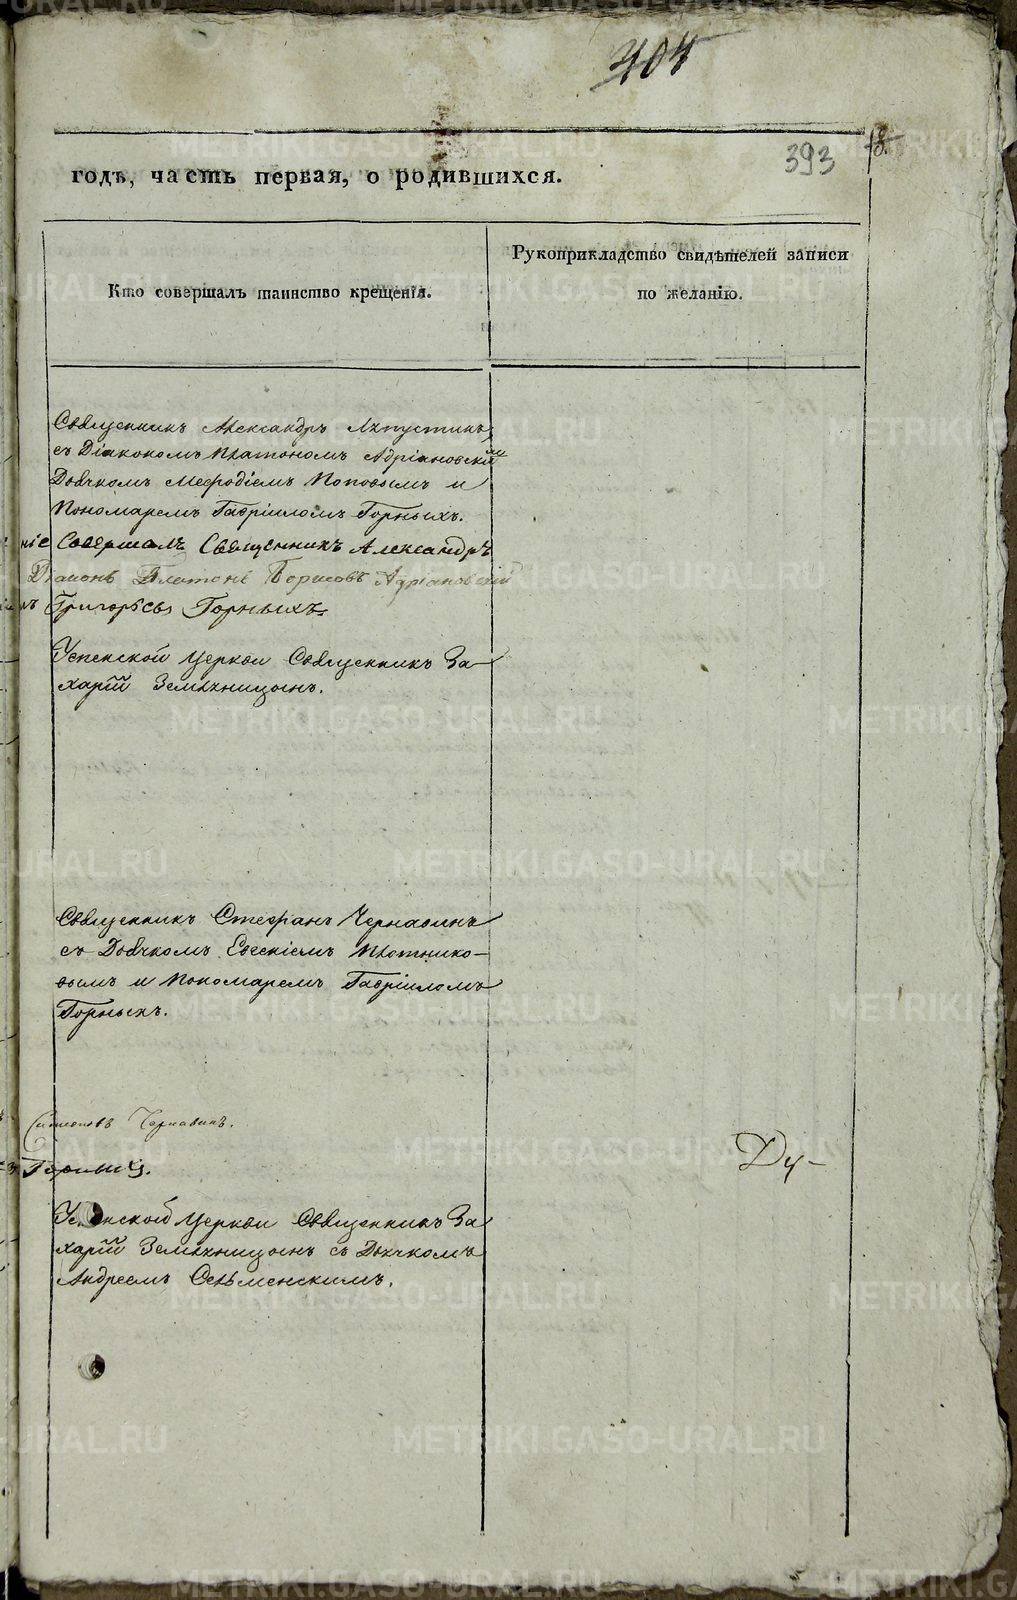 404
393
годѣ, часть первая, о родившихся.
Кто совершалъ таинство крещенія.
Рукоприкладство свидѣтелей записи
по желанію.
Священникъ Александръ Ляпустинъ
съ Діакономъ Платономъ Адріановскимъ
Дьячкомъ Меѳодіемъ Поповымъ и
Пономаремъ Гавріиломъ Горныхъ.
ніе Совершалъ Священникъ Александръ
Діаконъ Платонъ Борисовъ Адріановскій
Григорьевъ Горныхъ
Успенской Церкви Священникъ За-
харій Земляницынъ.
Священникъ Стефанъ Чернавинъ
съ Дьячкомъ Евсевіемъ Плотнико-
вымъ и Пономаремъ Гавріиломъ
Горныхъ.
Чернавинъ.
Горныхъ.
Ду-
Успенской Церкви Священникъ За
харій Земляницынъ съ Дьячкомъ
Андреемъ Сельменскимъ.
METRIKI.GASO-URAL.RU